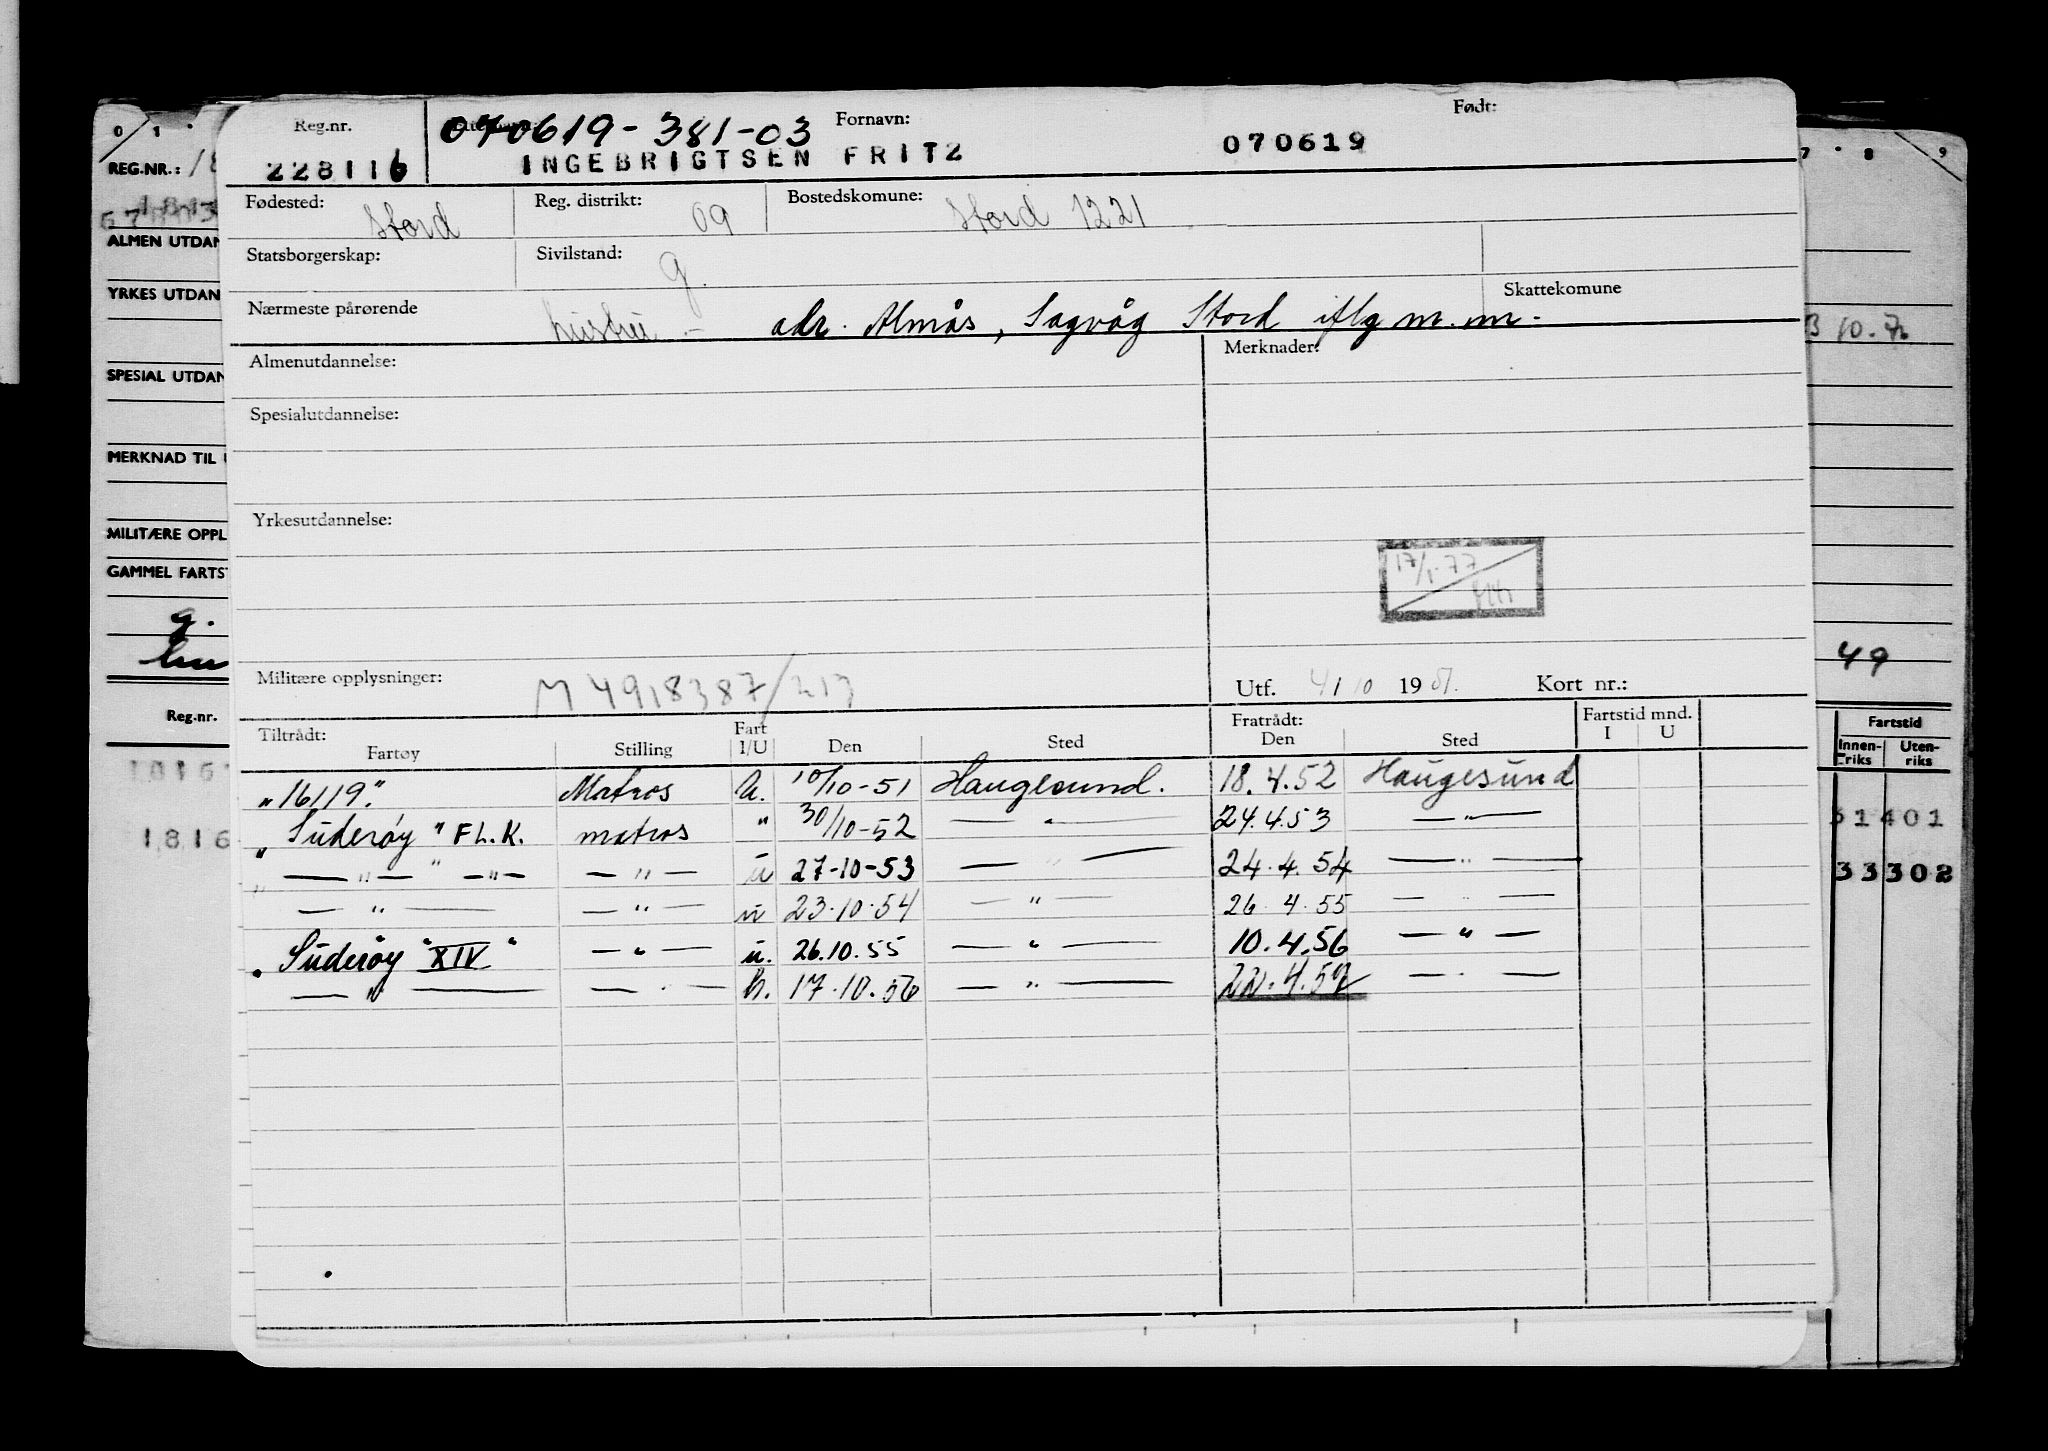 Reg.nr. Fornavn: Født:
228116 070619-381-03
INGEBRIGTSEN FRITZ 070619
Fødested: Stord Reg. distrikt: 09 Bostedskomune: Stord 1221
Statsborgerskap: Sivilstand: g.
Nærmeste pårørende hustru - adr. Almås, Sagvåg Stord iflg m.m. Skattekomune
Almenutdannelse: Merknader:
Spesialutdannelse:
Yrkesutdannelse:
17/1-77
Militære opplysninger: M 4918387/213 Utf. 4/10 1951. Kort nr.:
Tiltrådt: Fart Fratrådt: Fartstid mnd.
Fartøy Stilling I/U Den Sted Den Sted I U
"16119." Matros U. 10/10-51 Haugesund. 18.4.52 Haugesund
"Suderøy" FL.K. matros " 30/10-52 — " — 24.4.53 — " —
" — " — " — " — — " — u 27-10-53 — " — 24.4.54 — " —
— " — — " — u 23.10.54 — " — 26.4.55 — —
"Suderøy "XIV" — " — u. 26.10.55 — " — 10.4.56 — " —
— " — — " — U. 17.10.56 — " — 22.4.57 — " —
0 1
REG.NR.: 18
ALMEN UTDAN
YRKES UTDAN
SPESIAL UTDAN
MERKNAD TIL
MILITÆRE OPPL
GAMMEL FARTST
g.
hu
Reg.nr.
1816
7 8 9
10.7
49
Fartstid
Innenriks Utenriks
51401
33302